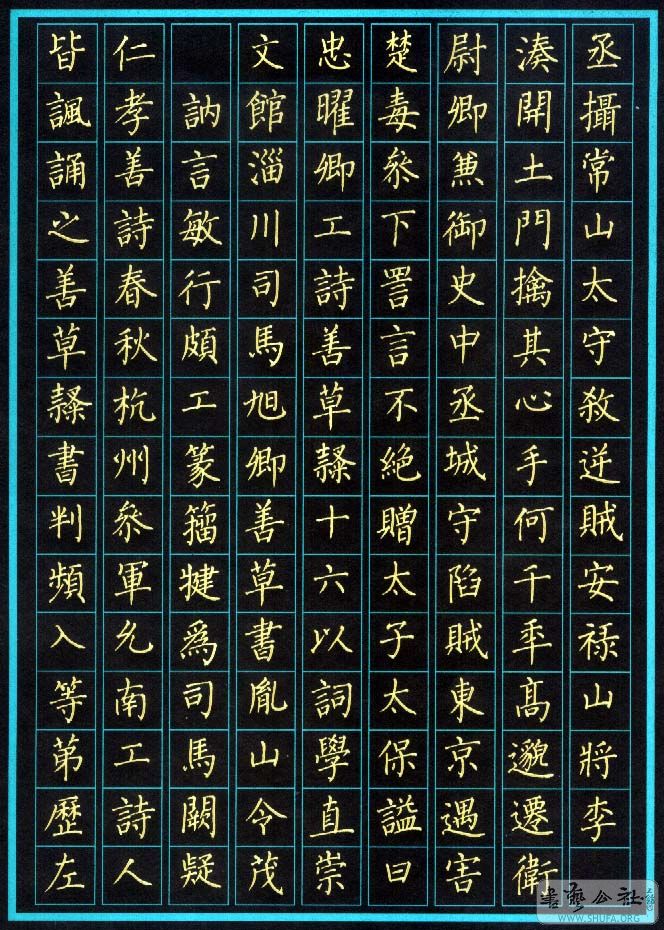 丞攝常山太守殺逆賊安祿山將李
湊開土門擒其心手何千年高邈遷衛
尉卿兼御史中丞城守陷賊東京遇害
楚毒參下詈言不絕贈太子太保謚曰
忠曜卿工詩善草隸十六以詞學直崇
文館淄川司馬旭卿善草書胤山令茂
訥言敏行頗工篆籀犍爲司馬闕疑
仁孝善詩春秋杭州參軍允南工詩人
皆諷誦之善草隸書判頻入等第歷左
書藝公社
WWW.SHUFA.ORG